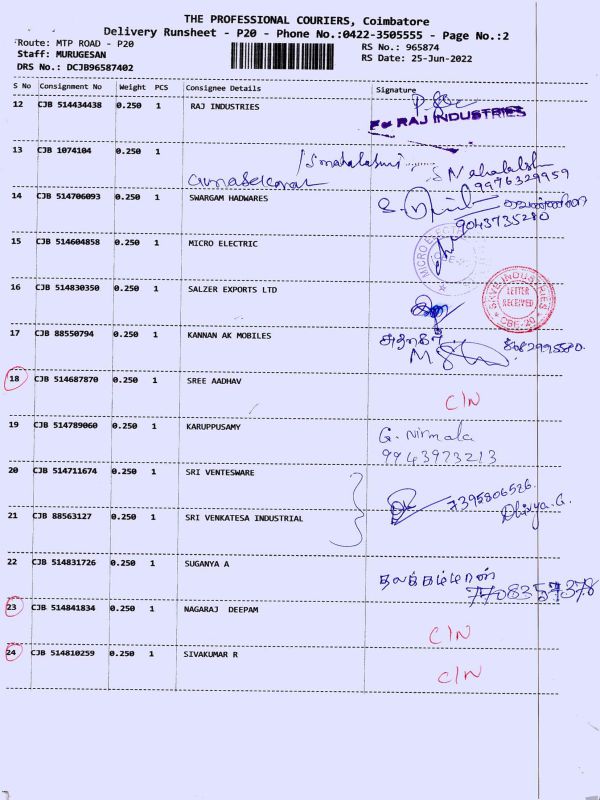 THE PROFESSIONAL COURIERS, Coimbatore
Delivery Runsheet - P20 - Phone No.:0422-3505555 - Page No.:2
Route: MTP ROAD - P20
RS No.: 965874
Staff: MURUGESAN
RS Date: 25-Jun-2022
DRS No.: DCJB96587402
S No Consignment No Weight PCS Consignee Details Signature
12 CJB 514434438 0.250 1 RAJ INDUSTRIES
For RAJ INDUSTRIES
13 CJB 1074104 0.250 1
9976329959
14 CJB 514706093 0.250 1 SWARGAM HADWARES
9043735280
15 CJB 514604858 0.250 1 MICRO ELECTRIC
MICRO ELECT
16 CJB 514830350 0.250 1 SALZER EXPORTS LTD
INDUSTRIES
LETTER
RECEIVED
17 CJB 88550794 0.250 1 KANNAN AK MOBILES
18 CJB 514687870 0.250 1 SREE AADHAV
C/N
19 CJB 514789060 0.250 1 KARUPPUSAMY G. Nirmala
9943973213
20 CJB 514711674 0.250 1 SRI VENTESWARE
7395806526.
Dhivya.G.
21 CJB 88563127 0.250 1 SRI VENKATESA INDUSTRIAL
22 CJB 514831726 0.250 1 SUGANYA A
7708357378
23 CJB 514841834 0.250 1 NAGARAJ DEEPAM
C/N
24 CJB 514810259 0.250 1 SIVAKUMAR R
C/N